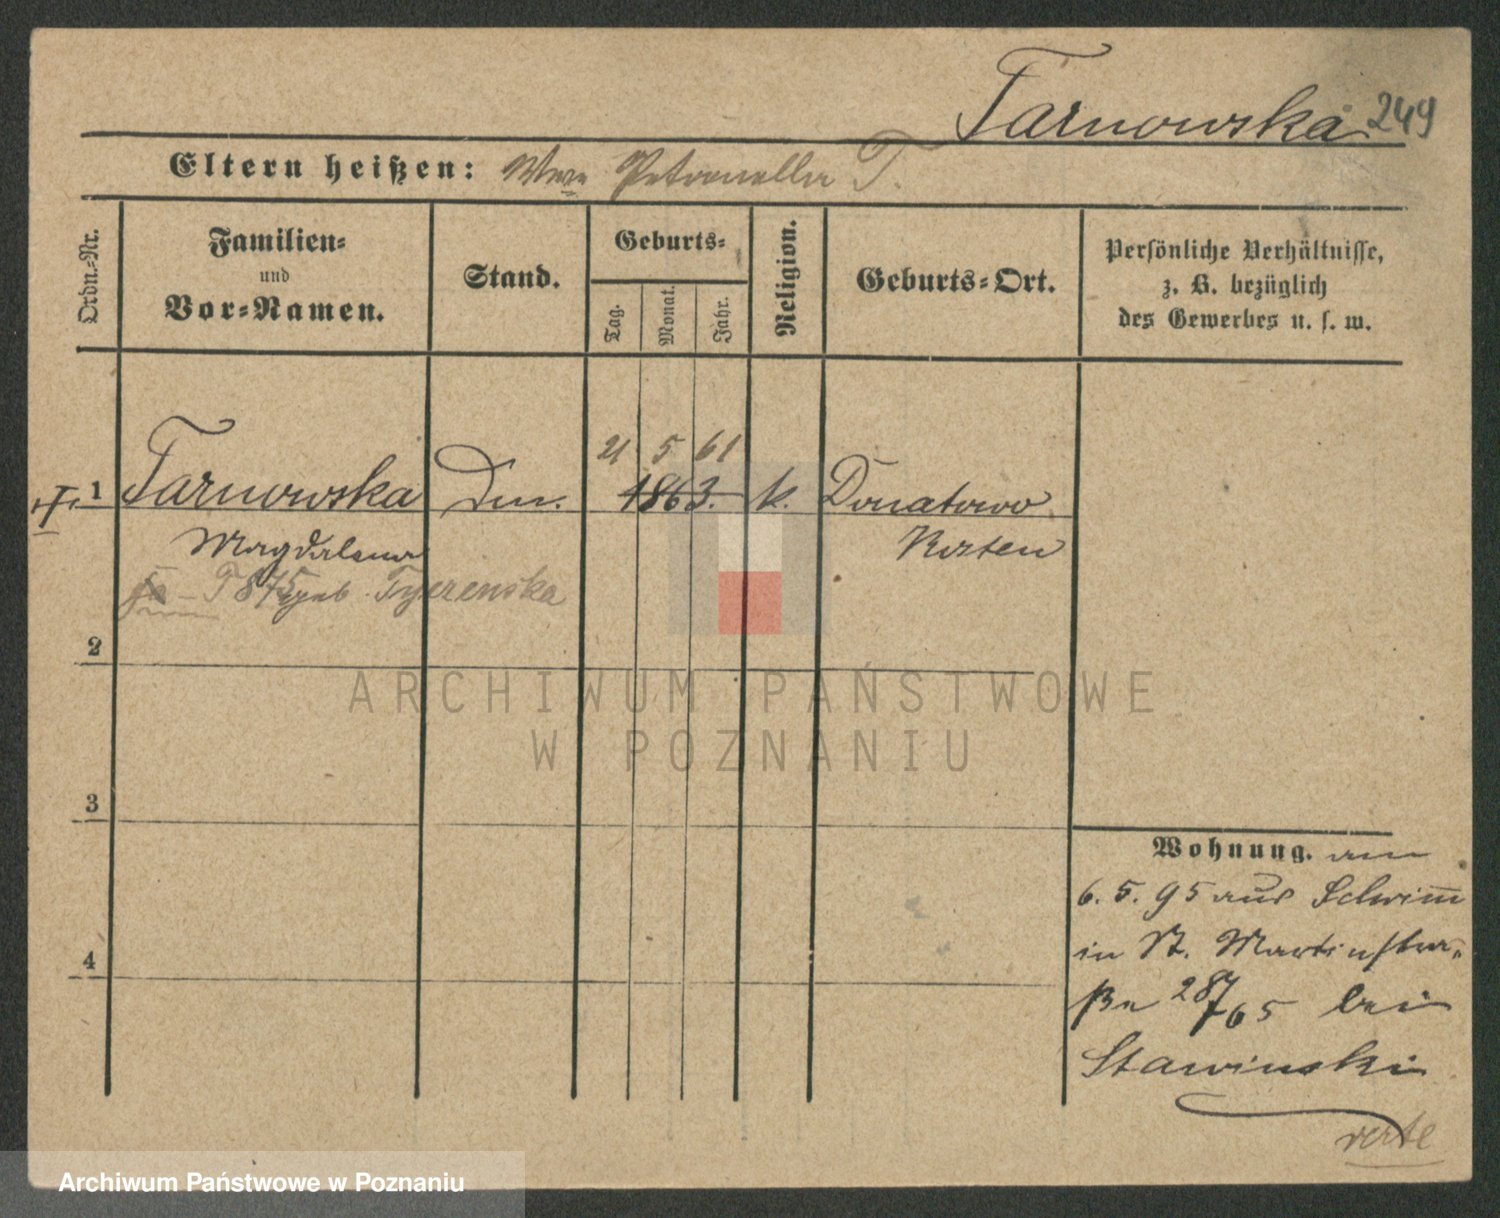 Tarnowska 249
Eltern heißen: Wwe Petronella T.
Ordn.-Nr.
Familien-
und
Vor-Namen.
Stand.
Geburts-
Tag.
Monat.
Jahr.
Religion.
Geburts-Ort.
Persönliche Verhältnisse,
z. B. bezüglich
des Gewerbes u. s. w.
21 5 61
1 Tarnowska 1863. k. Donatowo
Magdalena Kosten
T 875
2
3
4
ARCHIWUM PAŃSTWOWE
W POZNANIU
Wohnung. am
6. 5. 95 aus Schrimm
in St. Martinstra-
ße 28/65 bei
Stawinski
verte
Archiwum Państwowe w Poznaniu